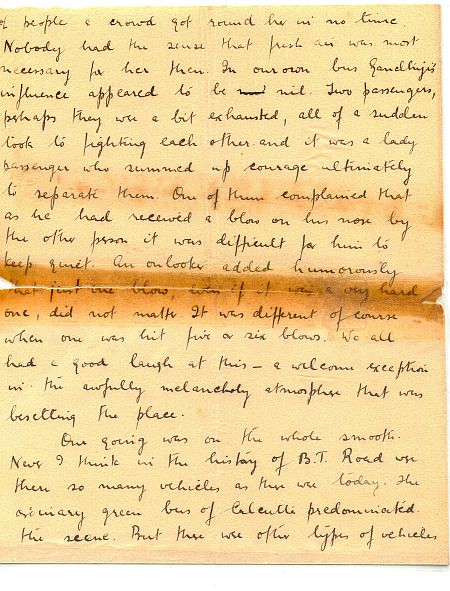 of people a crowd got round her in no time.
Nobody had the sense that fresh air was most
necessary for her then. In our own bus Gandhiji's
influence appeared to be nil. Two passengers,
perhaps they were a bit exhausted, all of a sudden
took to fighting each other and it was a lady
passenger who summed up courage ultimately
to separate them. One of them complained that
as he had received a blow on his nose by
the other person it was difficult for him to
keep quiet. An onlooker added humorously
that just one blow, even if it was a very hard
one, did not matter. It was different of course
when one was hit five or six blows. We all
had a good laugh at this – a welcome exception
in the awfully melancholy atmosphere that was
besetting the place.
One going was on the whole smooth.
Never I think in the history of B.T. Road were
there so many vehicles as there were today. The
ordinary green bus of Calcutta predominated
the scene. But there were other types of vehicles